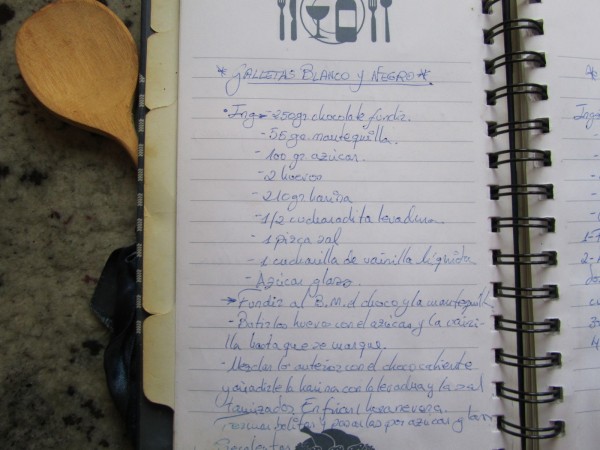 * GALLETAS BLANCO Y NEGRO *.
• Ing ► - 250gr chocolate fundir.
- 55 gr mantequilla.
- 100 gr azúcar.
- 2 huevos
- 210gr harina
- 1/2 cucharadita levadura.
- 1 pizca sal
- 1 cucharilla de vainilla líquida
- Azúcar glass.
→ Fundir al B.M. el choco y la mantequill
- Batir los huevos con el azúcar y la vaini-
lla hasta que se
- Mezclar lo anterior con el choco caliente
y añadirle la harina con la levadura y la sal
tamizador. Enfriar 1 hora nevera.
Formar bolitas y pasarlas por azúcar y
Ing
1-
2-
3
4